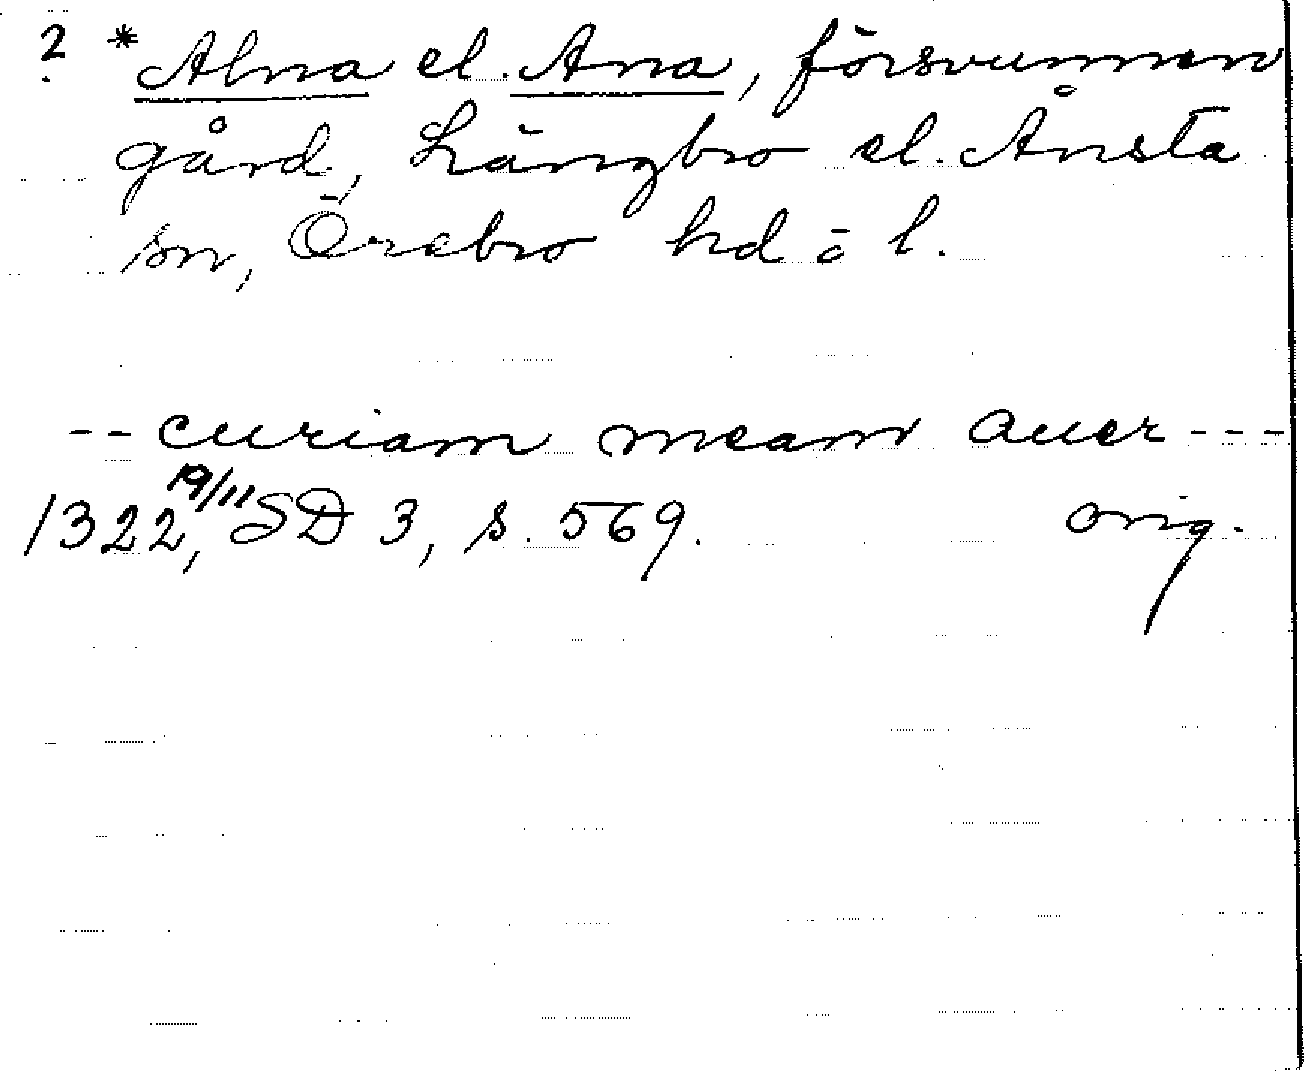 ? *Alna el. Ana, försvunnen
gård, Längbro el. Ånsta
sn, Örebro hd o l.
-- curiam meam auer ---
1322, 19/11 SD 3, s. 569. orig.